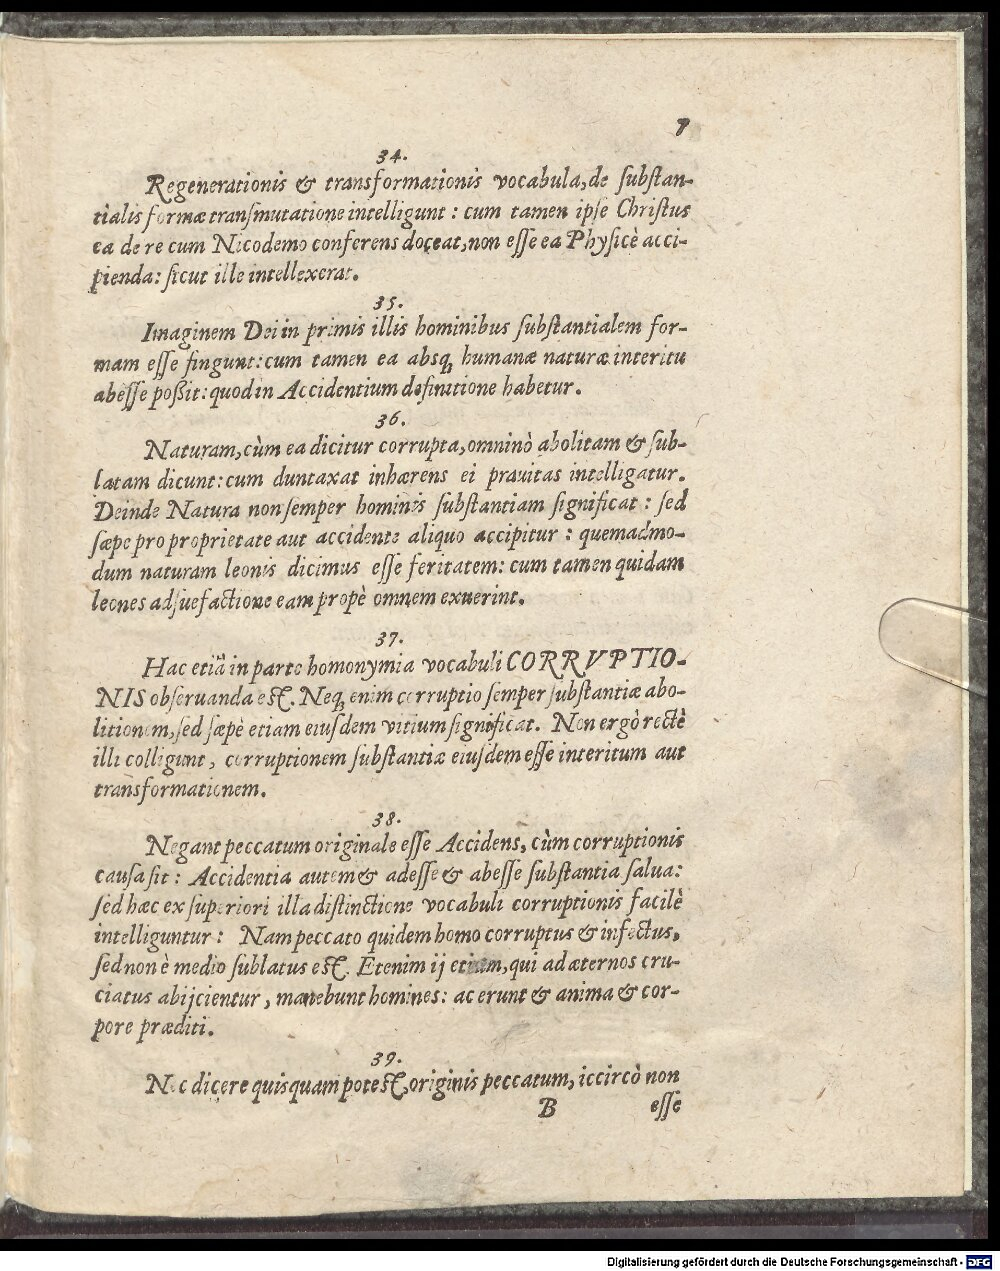 7
34.
Regenerationis & transformationis vocabula, de substan-
tialis formæ transmutatione intelligunt : cum tamen ipse Christus
ea de re cum Nicodemo conferens doceat, non esse ea Physicè acci-
pienda: sicut ille intellexerat.
35.
Imaginem Dei in primis illis hominibus substantialem for-
mam esse fingunt: cum tamen ea absq; humanæ naturæ interitu
abesse poßit: quod in Accidentium definitione habetur.
36.
Naturam, cùm ea dicitur corrupta, omninò abolitam & sub-
latam dicunt: cum duntaxat inhærens ei prauitas intelligatur.
Deinde Natura non semper hominis substantiam significat : sed
sæpe pro proprietate aut accidente aliquo accipitur : quemadmo-
dum naturam leonis dicimus esse feritatem: cum tamen quidam
leones adsuefactione eam propè omnem exuerint.
37.
Hac etiã in parte homonymia vocabuli CORRVPTIO-
NIS obseruanda est. Neq; enim corruptio semper substantiæ abo-
litionem, sed sæpè etiam eiusdem vitium significat. Non ergò rectè
illi colligunt, corruptionem substantiæ eiusdem esse interitum aut
transformationem.
38.
Negant peccatum originale esse Accidens, cùm corruptionis
causa sit : Accidentia autem & adesse & abesse substantia salua:
sed hæc ex superiori illa distinctione vocabuli corruptionis facilè
intelliguntur : Nam peccato quidem homo corruptus & infectus,
sed non è medio sublatus est. Etenim ij etiam, qui ad æternos cru-
ciatus abijcientur, manebunt homines: ac erunt & anima & cor-
pore præditi.
39.
Nec dicere quisquam potest, originis peccatum, iccircò non
B esse
Digitalisierung gefördert durch die Deutsche Forschungsgemeinschaft - DFG